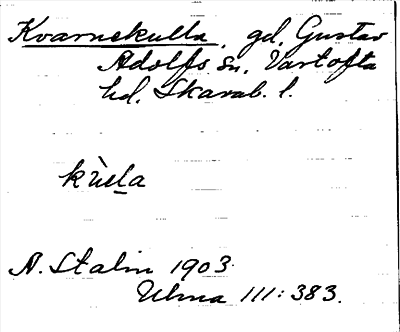 Kvarnekulla, gd, Gustav
Adolfs sn. Vartofta
hd. Skarab. l.
kùl̲a
A. Stalin 1903.
Ulma 111:383.